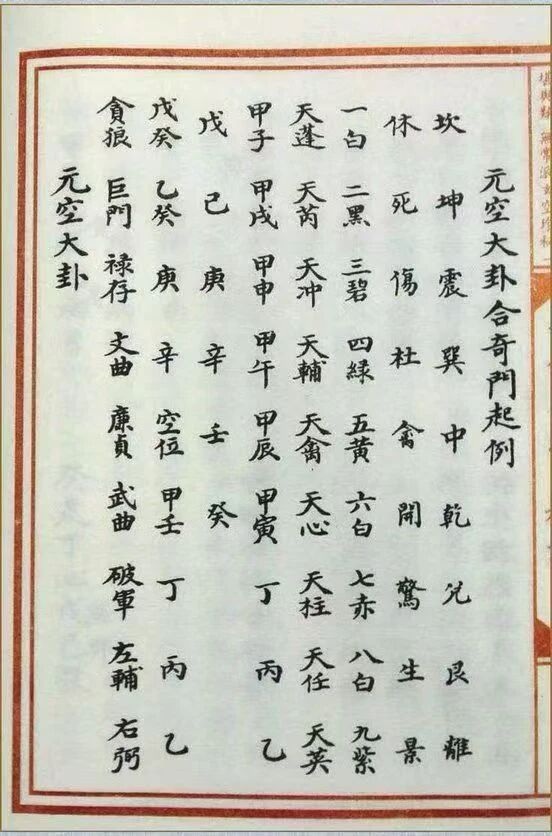 元空大卦合奇門起例
坎坤震巽中乾兌艮離
休死傷杜禽開驚生景
一白二黑三碧四緑五黃六白七赤八白九紫
天蓬天芮天冲天輔天禽天心天柱天任天英
甲子甲戌甲申甲午甲辰甲寅丁丙乙
戊己庚辛壬癸
戊癸乙癸庚辛空位甲壬丁丙乙
貪狼巨門禄存文曲廉貞武曲破軍左輔右弼
元空大卦